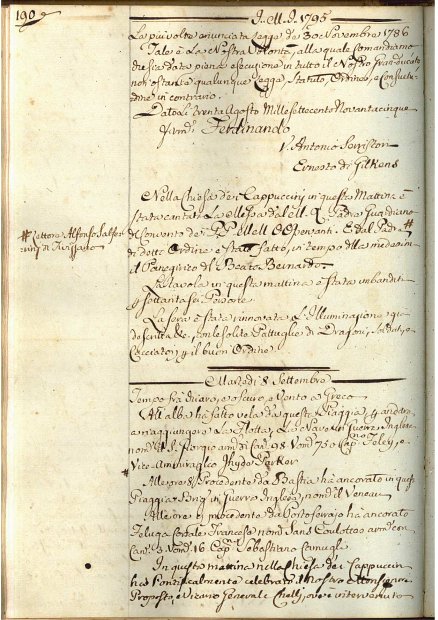 190
A. M. D. 1795
La più volte enunciata Legge de 30 Novembre 1786
Tale è la Nostra Volontà, alla quale comandiamo
che sia data piena esecuzione in tutto il Nostro Granducato
non ostante qualunque Legge, Statuto, Ordine, e Consuetu-
dine in contrario.
Dato li trenta Agosto Mille settecento Novantacinque
Ferdinando
V. Antonio Serristori
Ernesto di Gilkens
Nella Chiesa dei Cappuccini in questa Mattina è
stata cantata la Messa dal Padre Guardiano
# Lettore Alfonso
del Convento de PP. M. Osservanti. E dal Padre #
di detto Ordine è stato fatto, in tempo della medesima
il Panegirico del Beato Bernardo.
La Tavola in questa mattina è stata imbandita
per settanta sei Poverte.
La sera è stata rinnovata l'Illuminazione, go-
dente, con le solite Pattuglie di Dragoni, Soldati, e
per il buon Ordine.
Martedì 8 Settembre
Tempo fra chiaro, e oscuro, e Vento a Greco
All'alba ha fatto vela da questa Piaggia per andare
a raggiungere la Flotta, la Nave da Guerra Inglese
nom. il S. Giorgio arm. di Can. 98 Uom. 75 e Cap. Foley, e
Vice Ammiraglio Hyde Parker
Alle ore 8 Procedente da Bastia ha ancorato in questa
Piaggia Brig. in Guerra Inglese, nom. il
Alle ore procedente da Portoferraio ha ancorato
Feluga Corsale Francese nom. Sans Coulottes arm. con
Can. 3 Uom. 16 Cap. Sebastiano
In questa mattina nella Chiesa de Cappuccini
ha Pontificalmente celebrato il Nostro Monsignore
Proposto, e Vicario Generale ove è intervenuto